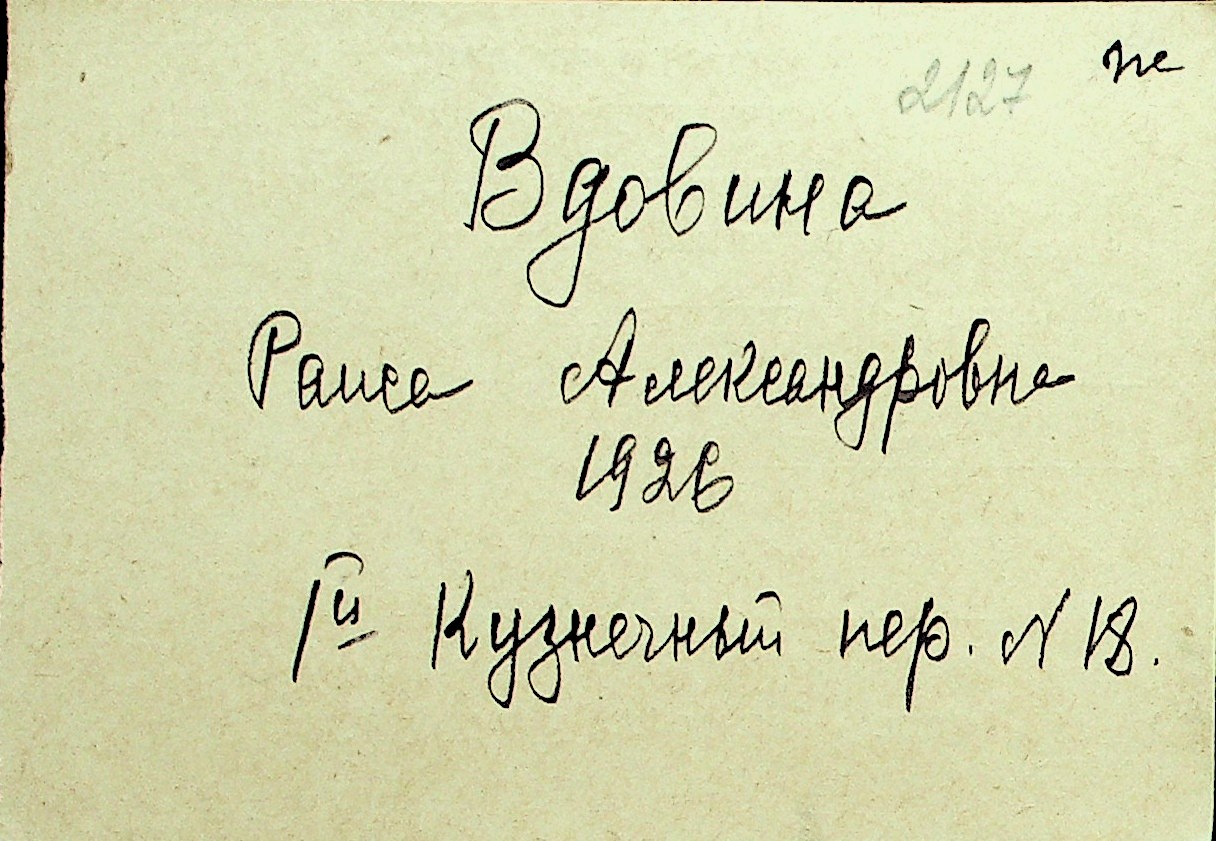 2127 пе
Вдовина
Раиса Александровна
1926
1й Кузнечный пер. N 18.